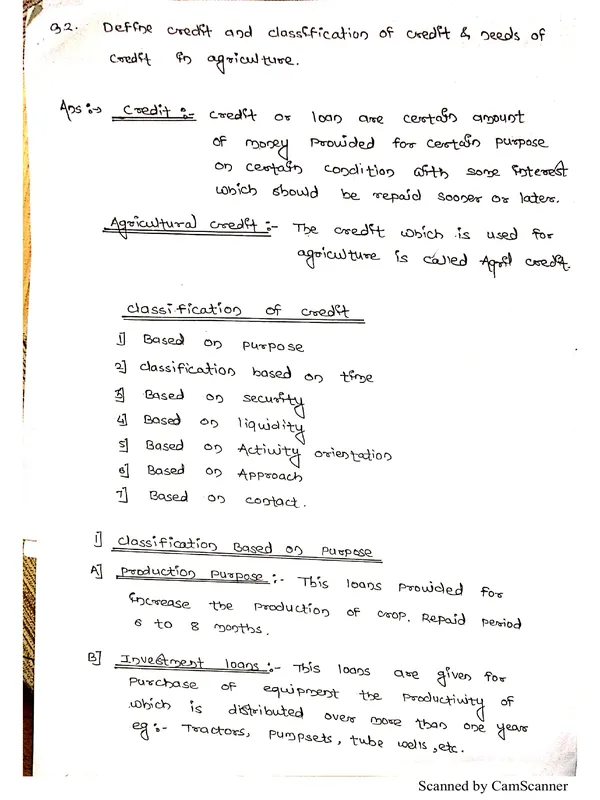 Q2. Define credit and classification of credit & needs of
credit in agriculture.
Ans :→ Credit :- credit or loan are certain amount
of money provided for certain purpose
on certain condition with some interest
which should be repaid sooner or later.
Agricultural credit :- The credit which is used for
agriculture is called Agril credit.
classification of credit
1] Based on purpose
2] classification based on time
3] Based on security
4] Based on liquidity
5] Based on Activity orientation
6] Based on Approach
7] Based on contact.
1] classification Based on purpose
A] production purpose :- This loans provided for
increase the production of crop. Repaid period
6 to 8 months.
B] Investment loans :- This loans are given for
purchase of equipment the productivity of
which is distributed over more than one year
eg :- Tractors, pumpsets, tube wells, etc.
Scanned by CamScanner